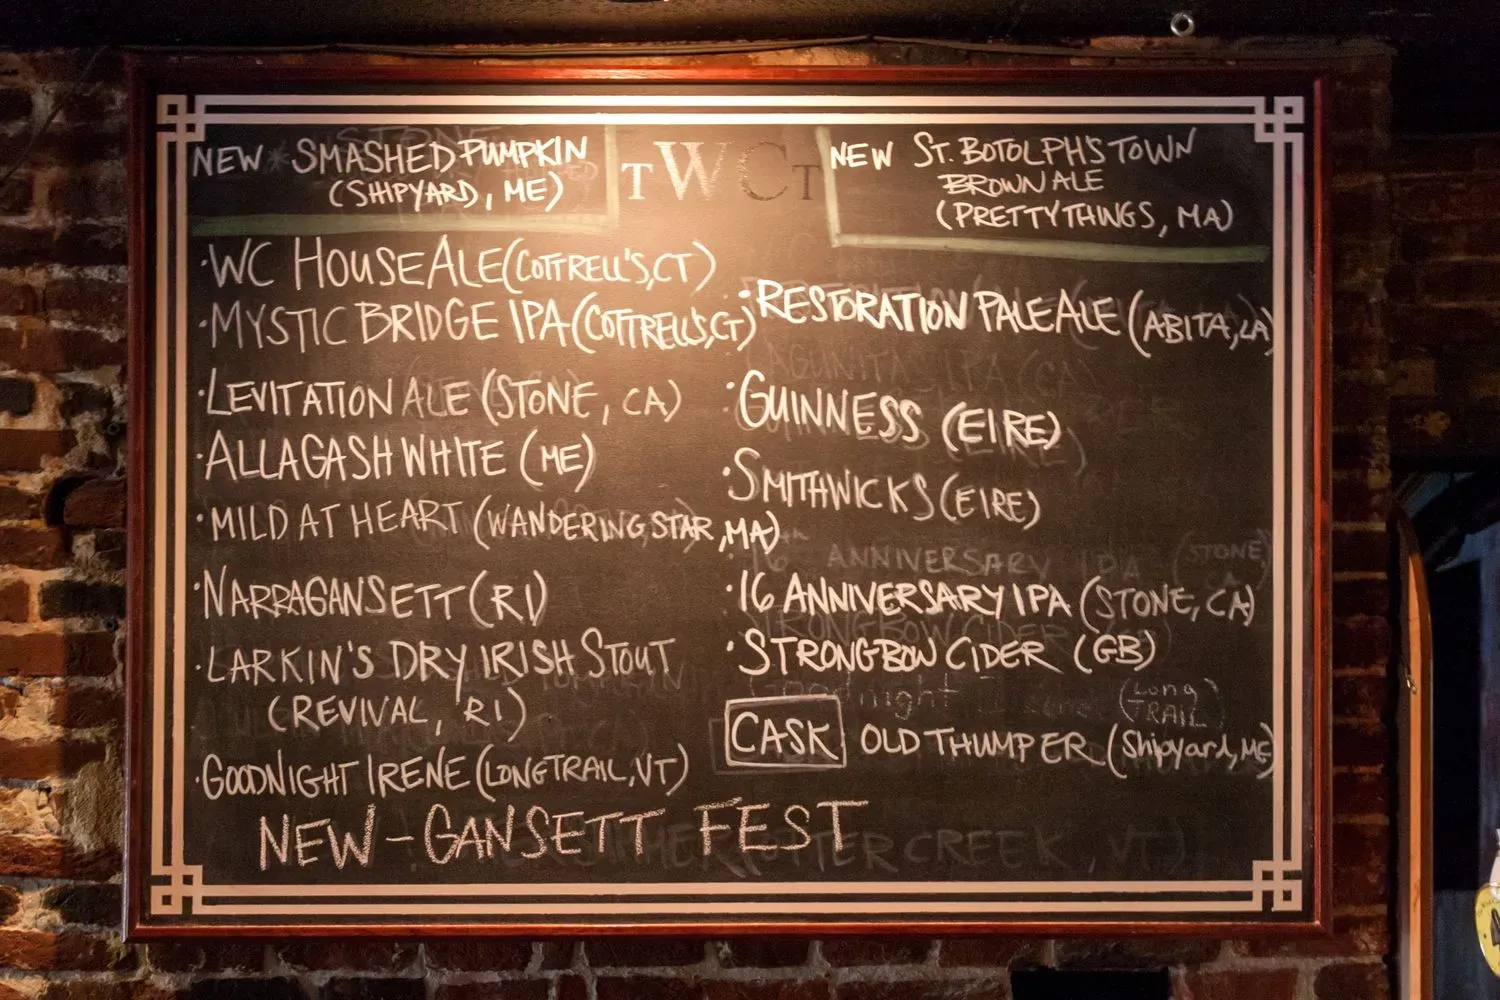 NEW * SMASHED PUMPKIN
(SHIPYARD, ME)
TWCT
NEW ST. BOTOLPH'S TOWN
BROWN ALE
(PRETTYTHINGS, MA)
·WC HOUSE ALE (COTTRELL'S, CT)
·MYSTIC BRIDGE IPA (COTTRELL'S, CT)
·LEVITATION ALE (STONE, CA)
·ALLAGASH WHITE (ME)
·MILD AT HEART (WANDERING STAR, MA)
·NARRAGANSETT (RI)
·LARKIN'S DRY IRISH STOUT
(REVIVAL, RI)
·GOODNIGHT IRENE (LONGTRAIL, VT)
NEW-GANSETT FEST
·RESTORATION PALE ALE (ABITA, LA)
·GUINNESS (EIRE)
·SMITHWICKS (EIRE)
16 ANNIVERSARY IPA (STONE, CA)
·16 ANNIVERSARY IPA (STONE, CA)
·STRONGBOW CIDER (GB)
Goodnight (Long
TRAIL)
CASK OLD THUMPER (Shipyard, ME)
OTTER CREEK, VT)